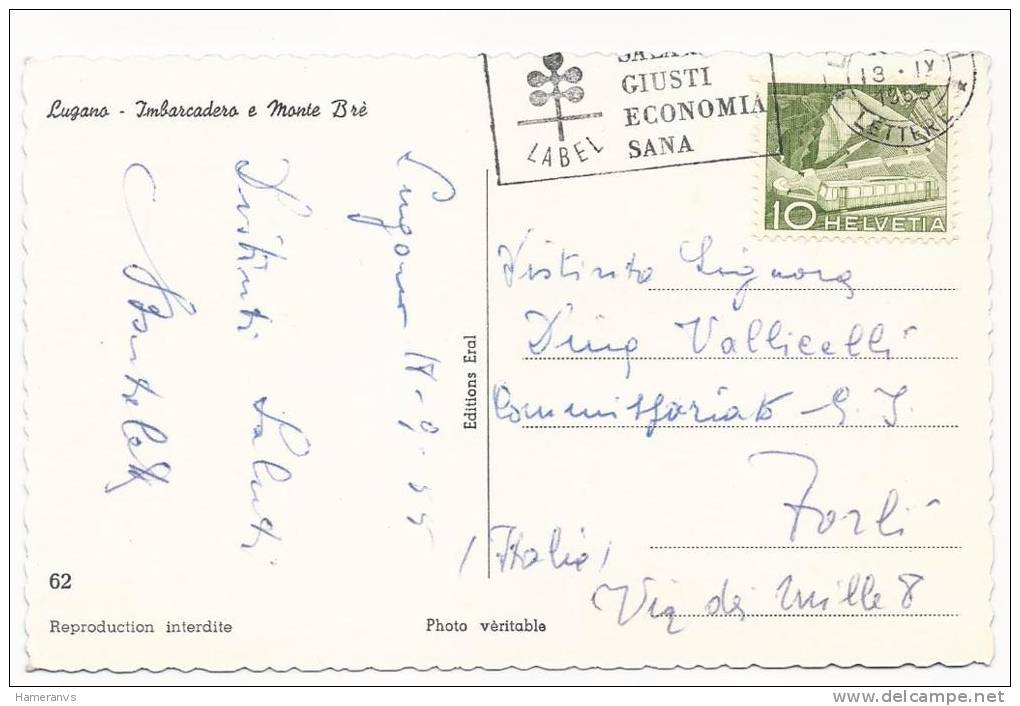 Lugano - Imbarcadero e Monte Brè
GIUSTI
ECONOMIA
SANA
LABEL
13 · IX
LETTERE
10 HELVETIA
Lugano
Distinti Saluti
Distinta Signora
Dina Vallicelli
Commissariato G. I.
Forlì
(Italia)
Via dei Mille 8
Editions Eral
62
Reproduction interdite
Photo vèritable
Hameranvs
www.delcampe.net